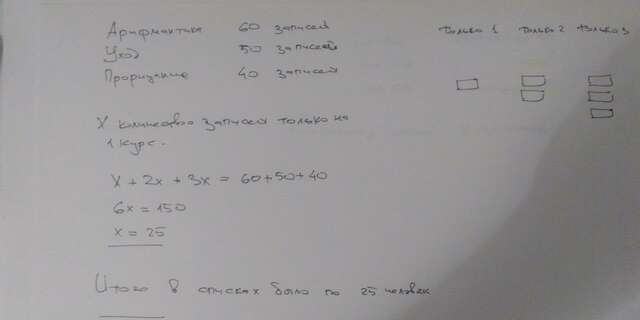 Арифмантика 60 записей
Уход 50 записей
Прорицание 40 записей
только 1 только 2 только 3
X количество записей только на
1 курс.
X + 2x + 3x = 60+50+40
6x = 150
x = 25
Итого в списках было по 25 человек